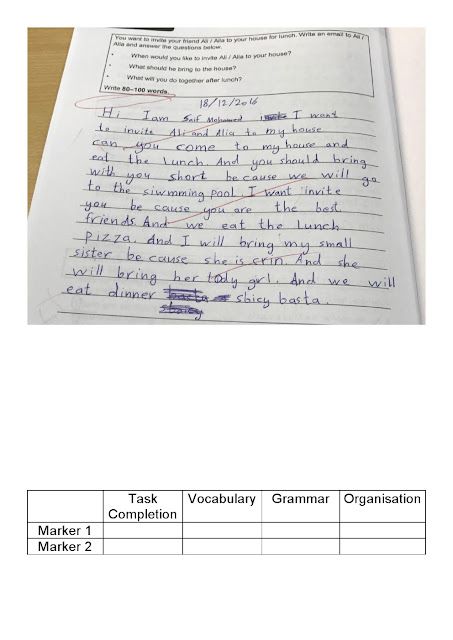 You want to invite your friend Ali / Alia to your house for lunch. Write an email to Ali /
Alia and answer the questions below.
• When would you like to invite Ali / Alia to your house?
• What should he bring to the house?
• What will you do together after lunch?
Write 80–100 words.
18/12/2016
Hi I am Saif Mohamed I want
to invite Ali and Alia to my house
can you come to my house and
eat the lunch. And you should bring
with you short be cause we will go
to the siwmming pool. I want invite
you be cause you are the best
friends And we eat the Lunch
pizza. And I will bring my small
sister be cause she is crin. And she
will bring her tody girl. And we will
eat dinner sbicy basta.
Task Completion Vocabulary Grammar Organisation
Marker 1
Marker 2